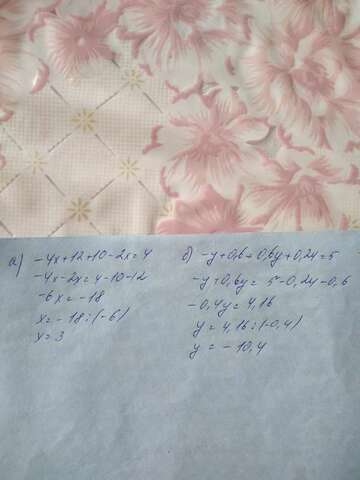 а) -4x+12+10-2x=4
-4x-2x=4-10-12
-6x=-18
x=-18:(-6)
x=3
б) -y+0,6+0,6y+0,24=5
-y+0,6y=5-0,24-0,6
-0,4y=4,16
y=4,16:(-0,4)
y=-10,4